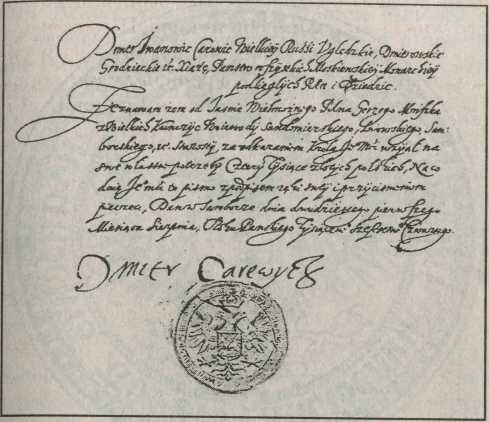 Dmitr Iwanowic Carewic Wielkiey Russi Uglebzkie, Dmitrowskie
Grodeckie ec. Xiążę, Państw wszystkich Moskiewskiey Monarchiey
podległych Pan i Dziedzic.
Zeznawam żem od Jaśnie Wielmożnego Pana Jerzego Mniszka
z Wielkich Kunczyc Woiewody Sandomierskiego, Lwowskiego Sam-
borskiego, ec. Starosty, za wskazaniem Króla Je° Mći wziął na
swe własne potrzeby Cztery Tysiące złotych polskich, Na co
daię Je° Mći to pismo z podpisem ręki swey i przyciśnieniem
pieczęci, Dan w Samborze dnia dwudziestego pierwszego
Miesiąca Sierpnia, Roku Pańskiego Tysiąc
Dmitr Carewycz